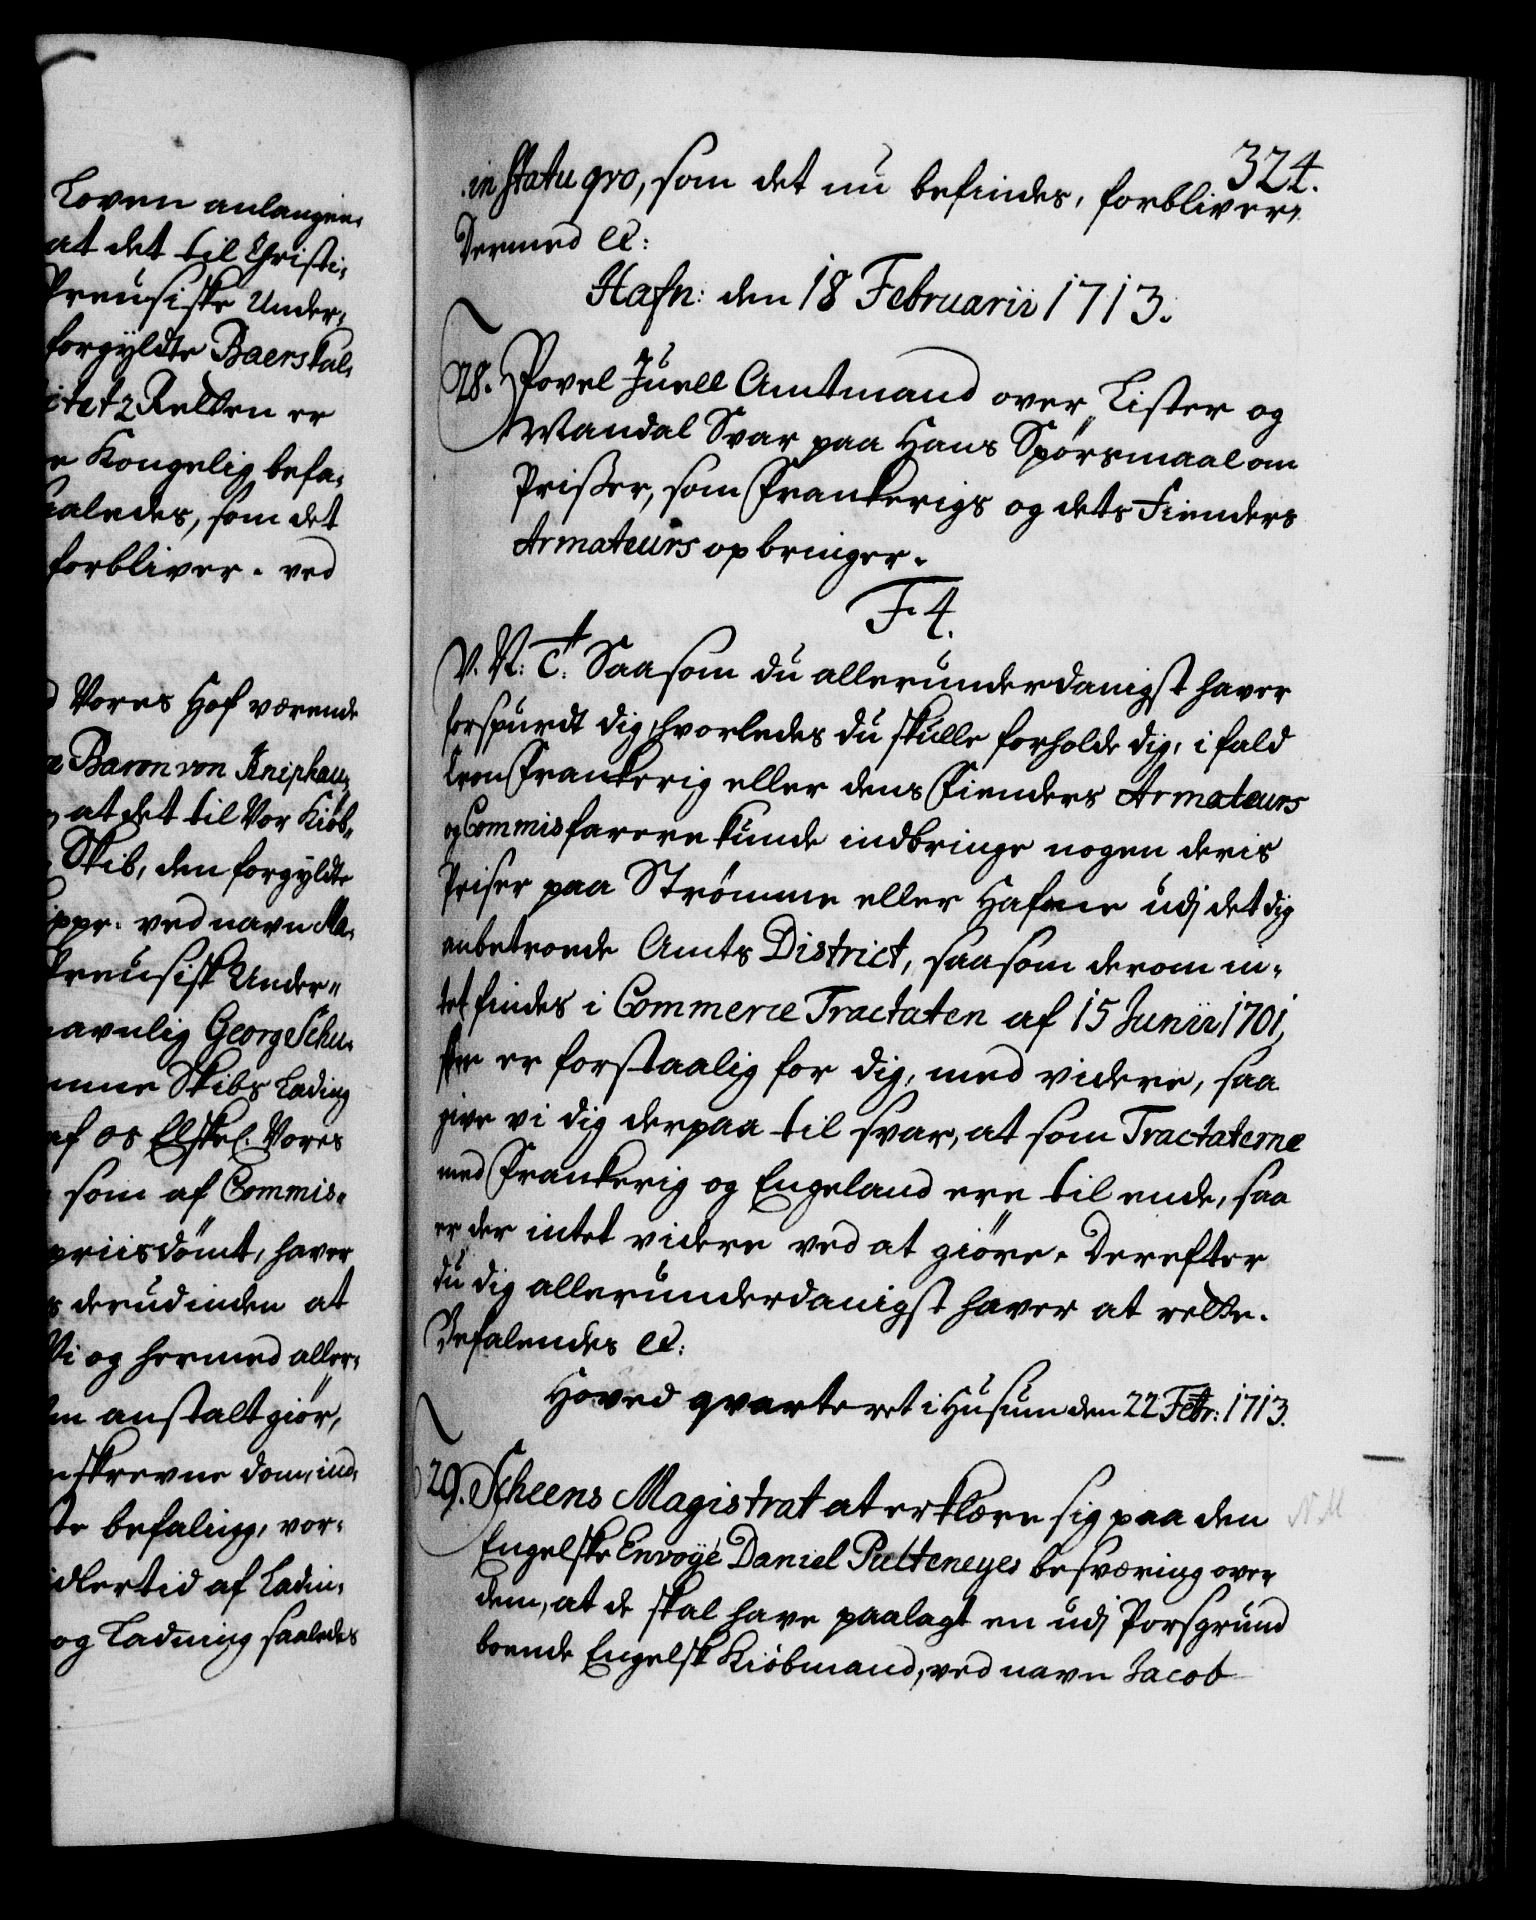 Loven anlangen-
at det til Christi-
Preusiske Under-
forgyldte Baerskal-
Retten er
Kongelig befa-
aledes, som det
forbliver. ved
Vores Hof værende
Baron von Kniphau-
at det til Vor Kiøb-
Skib, den forgyldte
ved navn Ma-
Preusisk Under-
navnlig George Schu-
Skibs Lading
af os Elskel. Vores
som af Commis-
priisdømt, haver
derudinden at
Vi og hermed aller-
anstalt giør,
skrevne dom, ind-
befaling, vor-
idlertid af Ladin-
og Ladning saaledes
324.
in statu qvo, som det nu befindes, forbliver,
Dermed &c:
Hafn: den 18 Februarii 1713.
28. Povel Juell Amtmand over Lister og
Mandal Svar paa Hans Spørsmaal om
Prisser, som Frankerigs og dets Fienders
Armateurs opbringer.
F 4.
V. G: T. Saasom du allerunderdanigst haver
forspurdt dig, hvorledes du skulle forholde dig, ifald
Cron Frankerig eller dens Fienders Armateurs
og Commisfarere kunde indbringe nogen deris
Priser paa Strømme eller Hafne udj det dig
anbetroede Amts District, saasom derom in-
tet findes i Commerce Tractaten af 15 Junii 1701,
som er forstaalig for dig, med videre, saa
give vi dig derpaa til svar, at som Tractaterne
med Frankerig og Engeland ere til ende, saa
er der intet videre ved at giøre. Derefter
du dig allerunderdanigst haver at rette.
Befalendes &c:
Hoved qvarteret i Husum den 22 Febr: 1713.
29. Scheens Magistrat at erklære sig paa den
Engelske Envoyé Daniel Pulteneyes besværing over
dem, at de skal have paalagt en udj Porsgrund
boende Engelsk Kiøbmand, ved navn Jacob
N.M